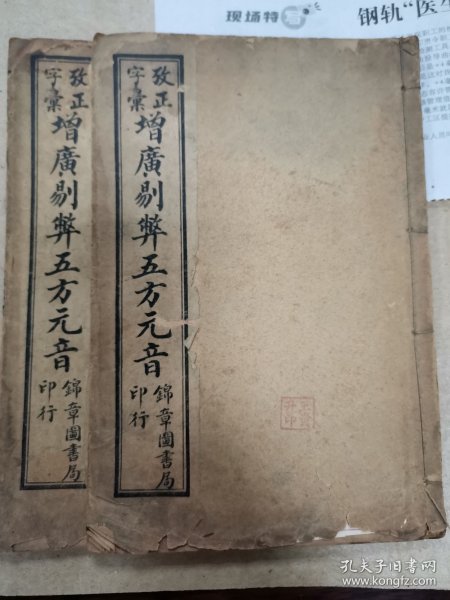 现场特写
钢轨“医生
攷正
字彙
增廣剔弊五方元音
錦章圖書局
印行
攷正
字彙
增廣剔弊五方元音
錦章圖書局
印行
孔夫子旧书网
www.kongfz.com